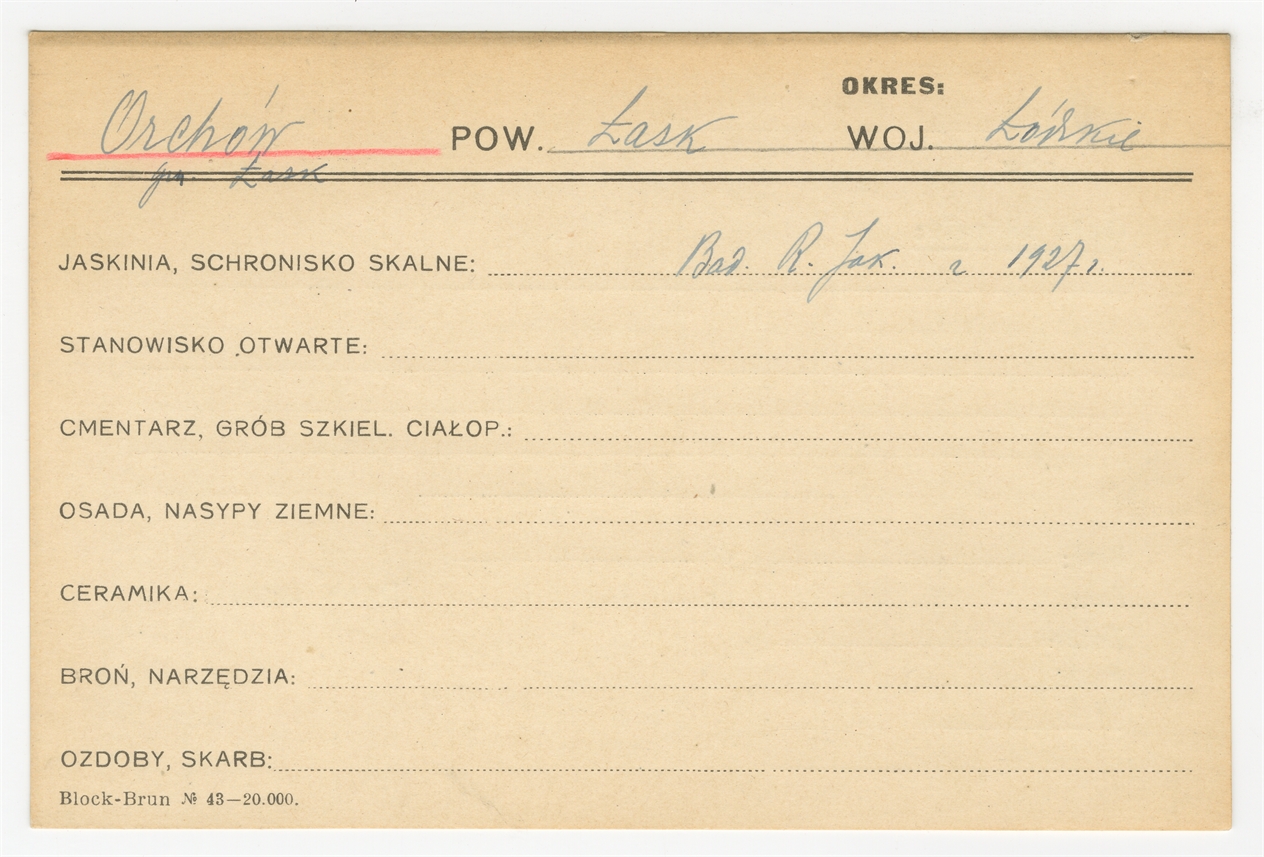 OKRES:
Orchów POW. Łask WOJ. Łódzkie
gm. Łask
JASKINIA, SCHRONISKO SKALNE: Bad. R. Jak. z 1927 r.
STANOWISKO OTWARTE:
CMENTARZ, GRÓB SZKIEL. CIAŁOP.:
OSADA, NASYPY ZIEMNE:
CERAMIKA:
BROŃ, NARZĘDZIA:
OZDOBY, SKARB:
Block-Brun № 43—20.000.